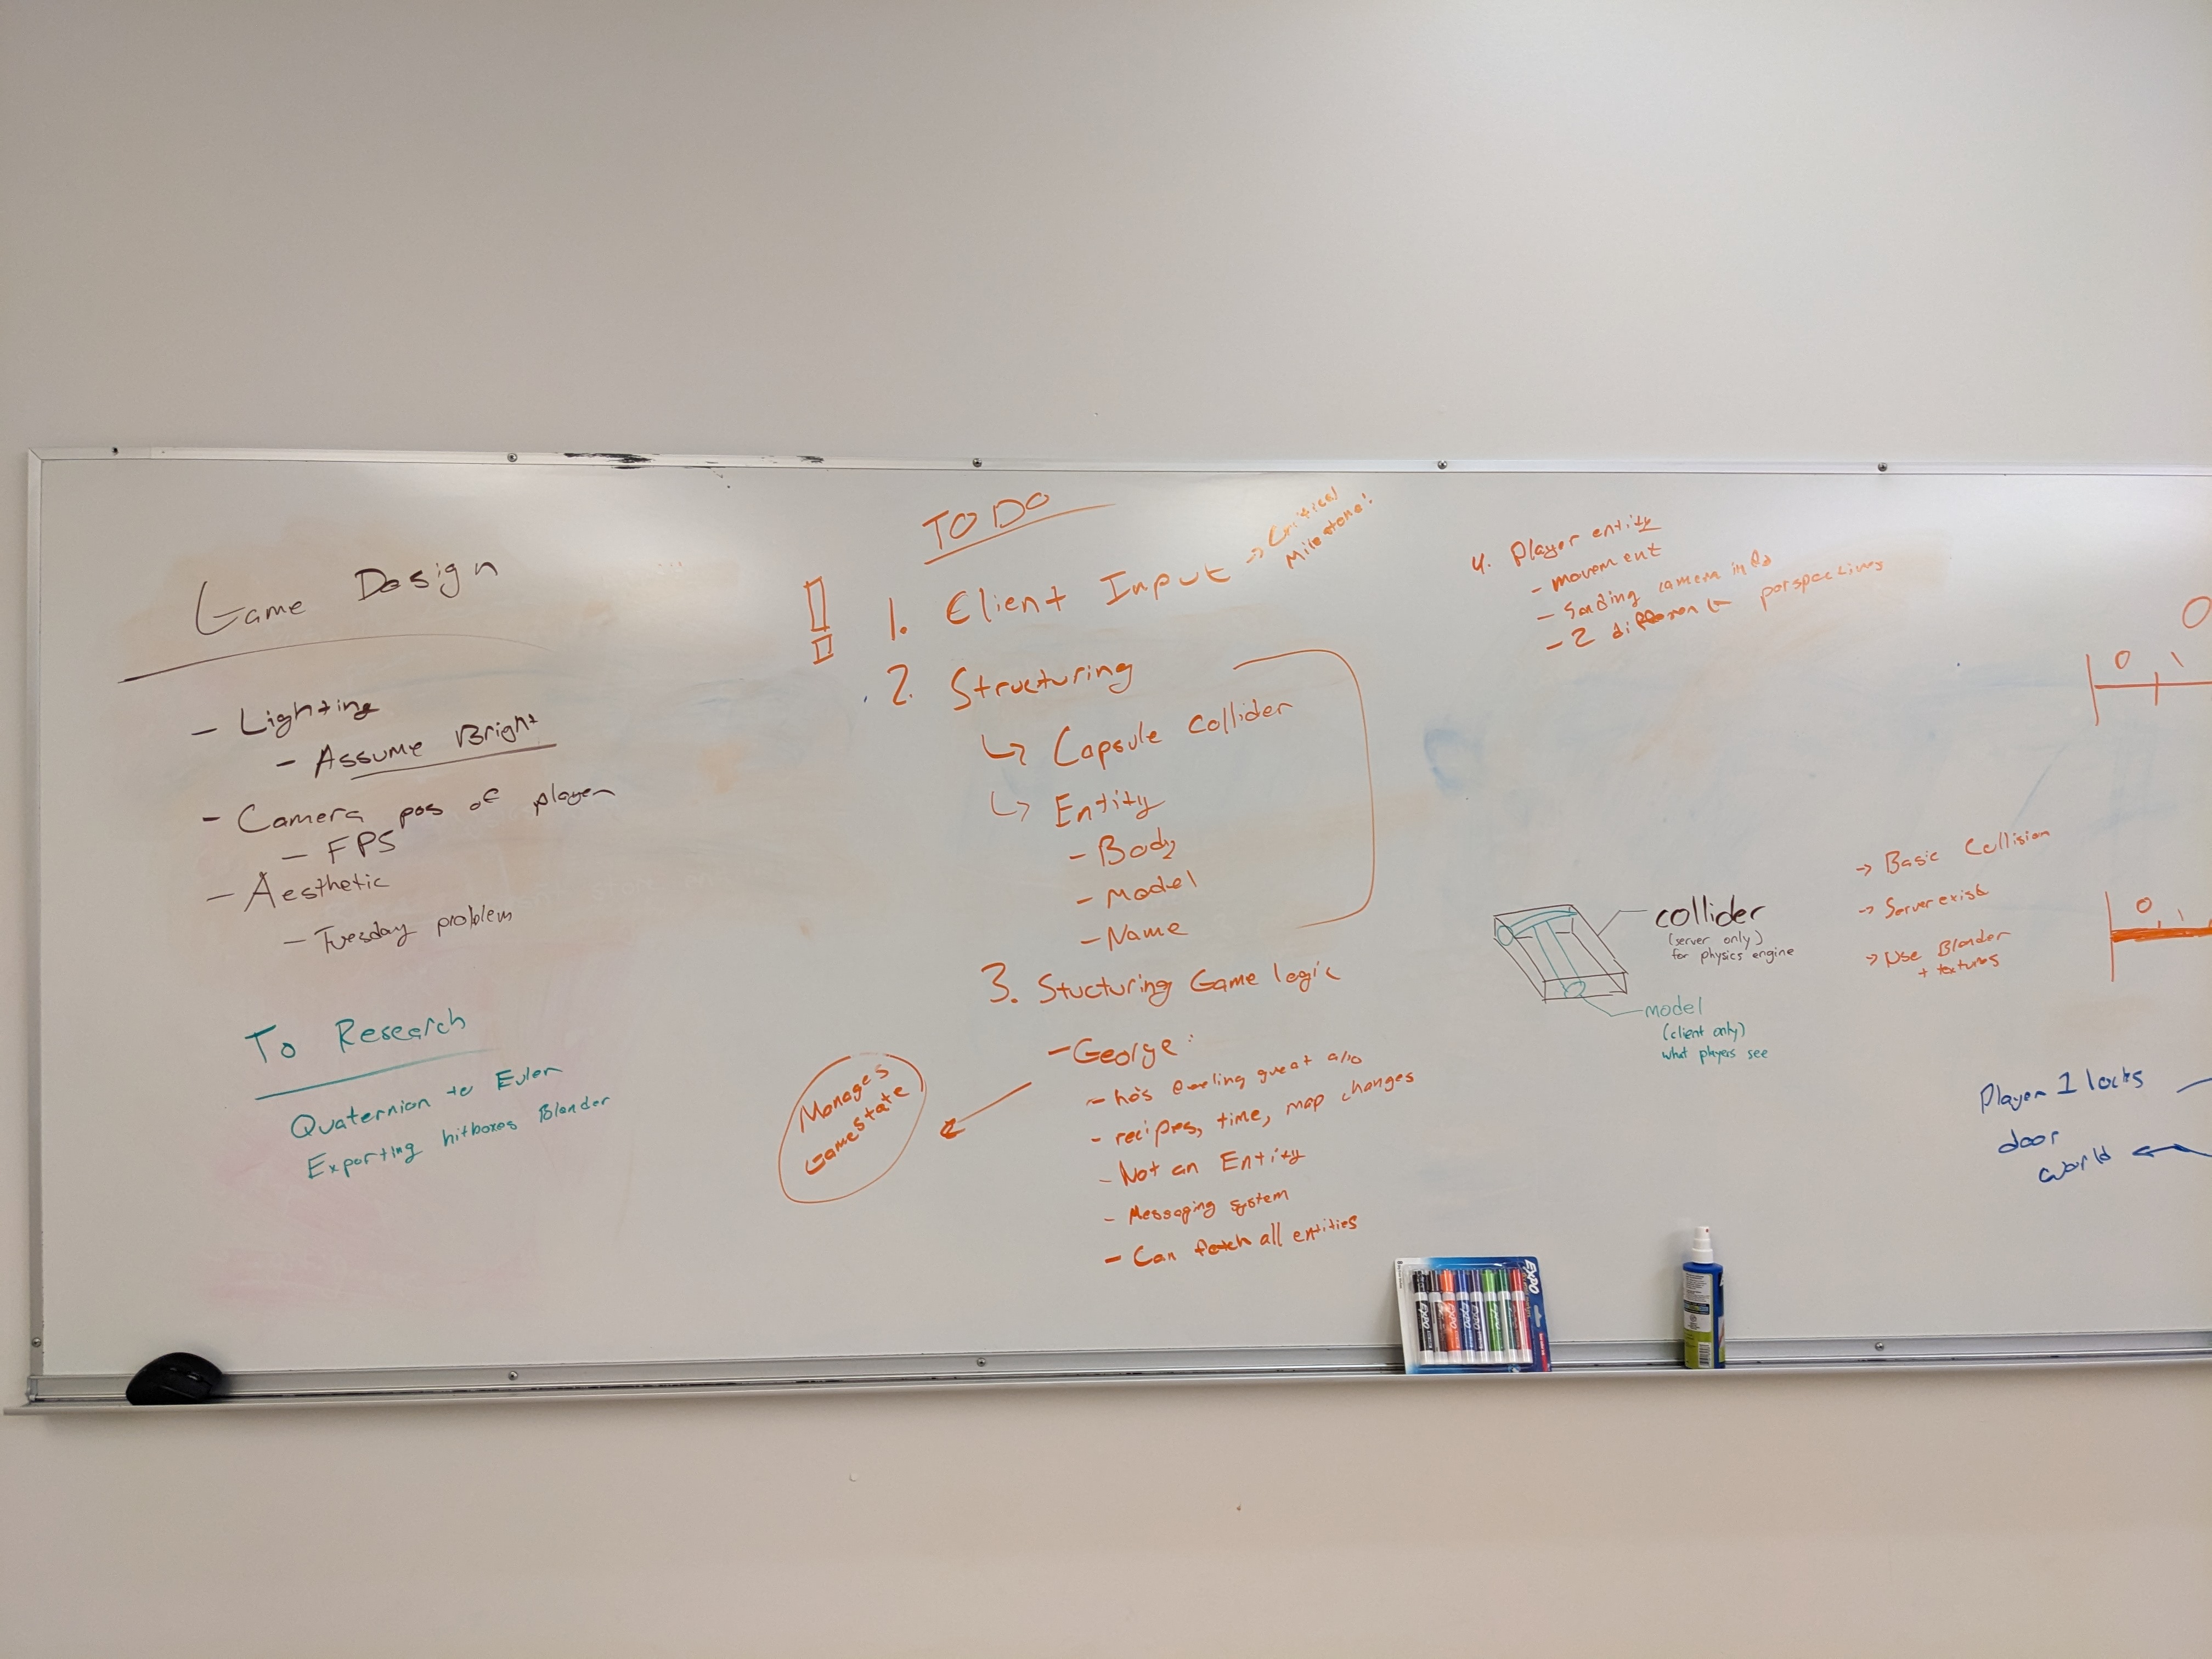 Game Design
- Lighting
- Assume Bright
- Camera pos of player
- FPS
- Aesthetic
- Tuesday problem
To Research
Quaternion to Euler
Exporting hitboxes Blender
TO DO
1. Client Input → Critical
Milestone!
2. Structuring
↳ Capsule Collider
↳ Entity
- Body
- Model
- Name
3. Stucturing Game logic
- George:
- he's feeling great also
- recipes, time, map changes
- Not an Entity
- Messaging system
- Can fetch all entities
Manages
Gamestate
4. Player entity
- movement
- Sending camera info
- 2 different perspectives
collider
(server only)
for physics engine
model
(client only)
what players see
→ Basic Collision
→ Server exist
→ Use Blender
+ textures
0
0
Player 1 locks
door
world
EXPO